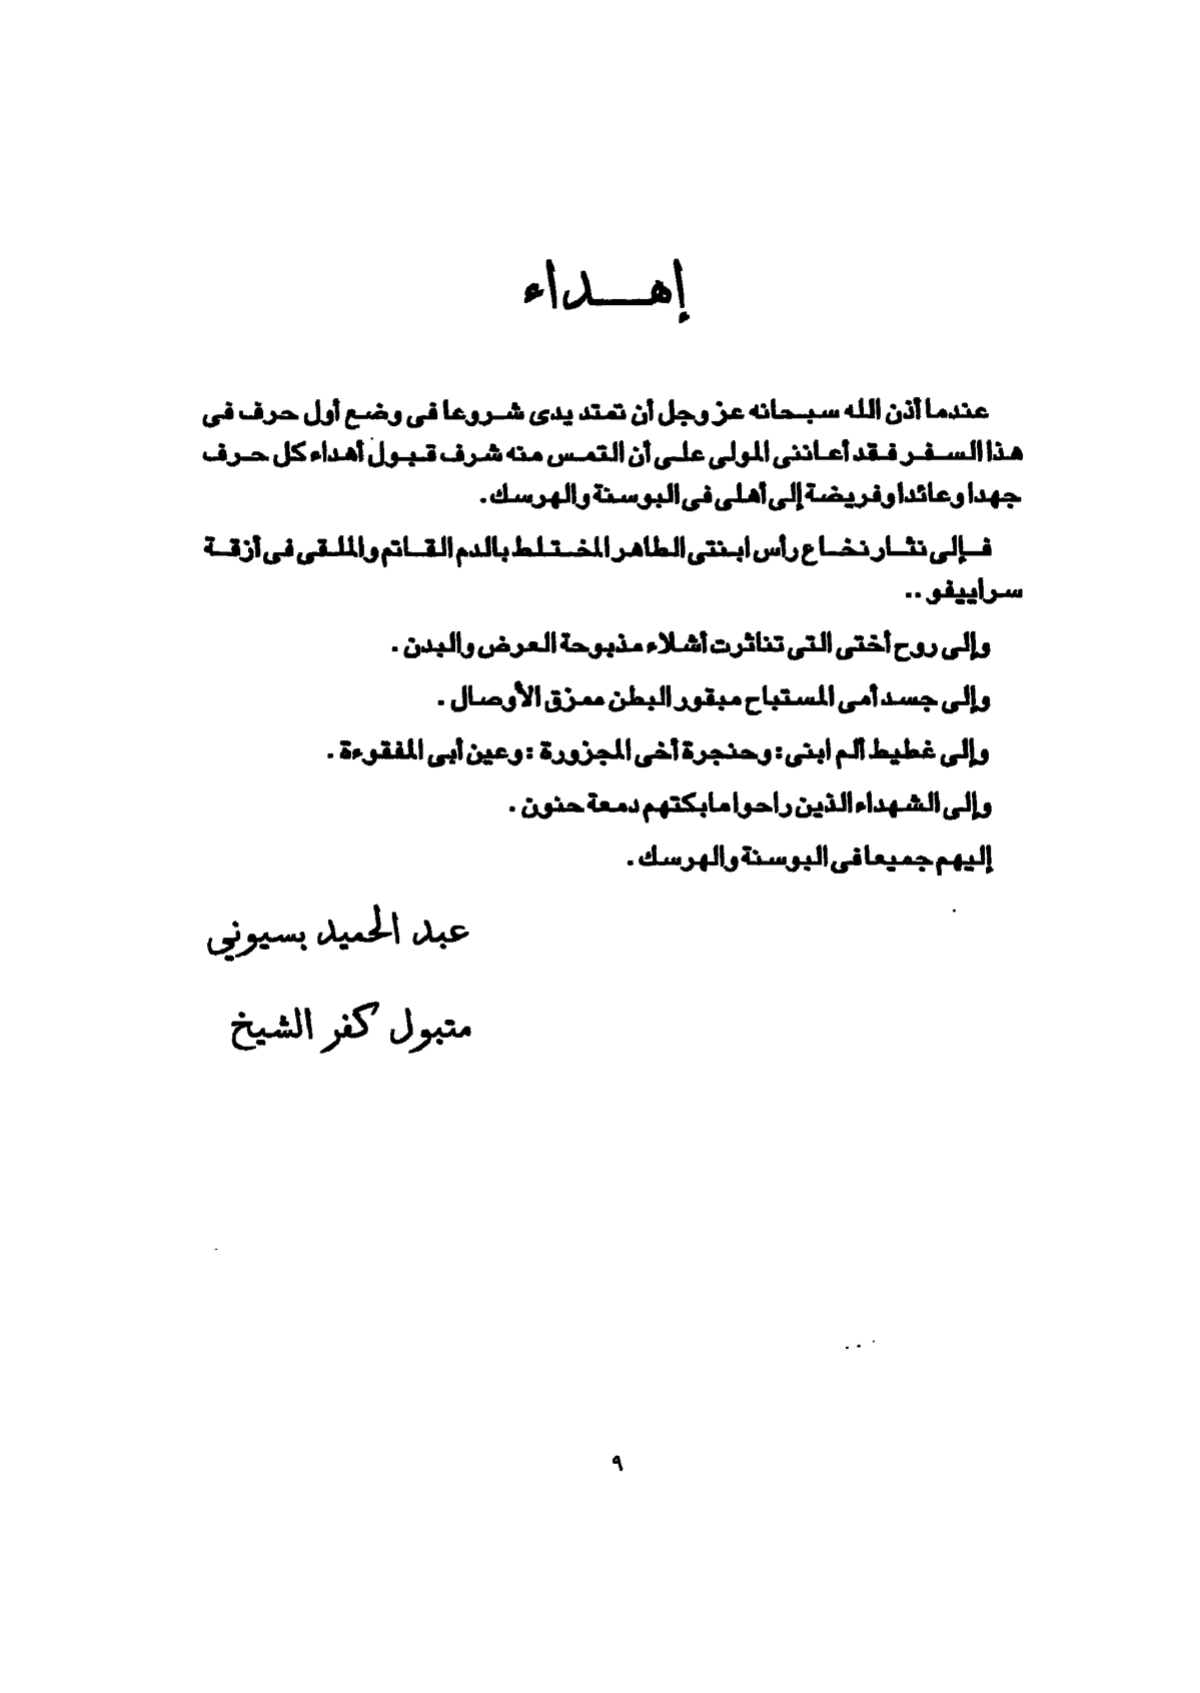 إهداء
عندما أذن الله سبحانه عز وجل أن تمتد يدى شروعا فى وضع أول حرف فى
هذا السفر فقد أعاننى المولى على أن التمس منه شرف قبول أهداء كل حرف
جهدا وعائدا وفريضة إلى أهلى فى البوسنة والهرسك .
فإلى نثار نخاع رأس ابنتى الطاهر المختلط بالدم القاتم والملقى فى أزقة
سراييفو ..
وإلى روح أختى التى تناثرت أشلاء مذبوحة العرض والبدن .
وإلى جسد أمى المستباح مبقور البطن ممزق الأوصال .
وإلى غطيط ألم ابنى : وحنجرة أخى المجزورة : وعين أبى المفقوءة .
وإلى الشهداء الذين راحوا مابكتهم دمعة حنون .
إليهم جميعا فى البوسنة والهرسك .
عبد الحميد بسيوني
متبول كفر الشيخ
٩